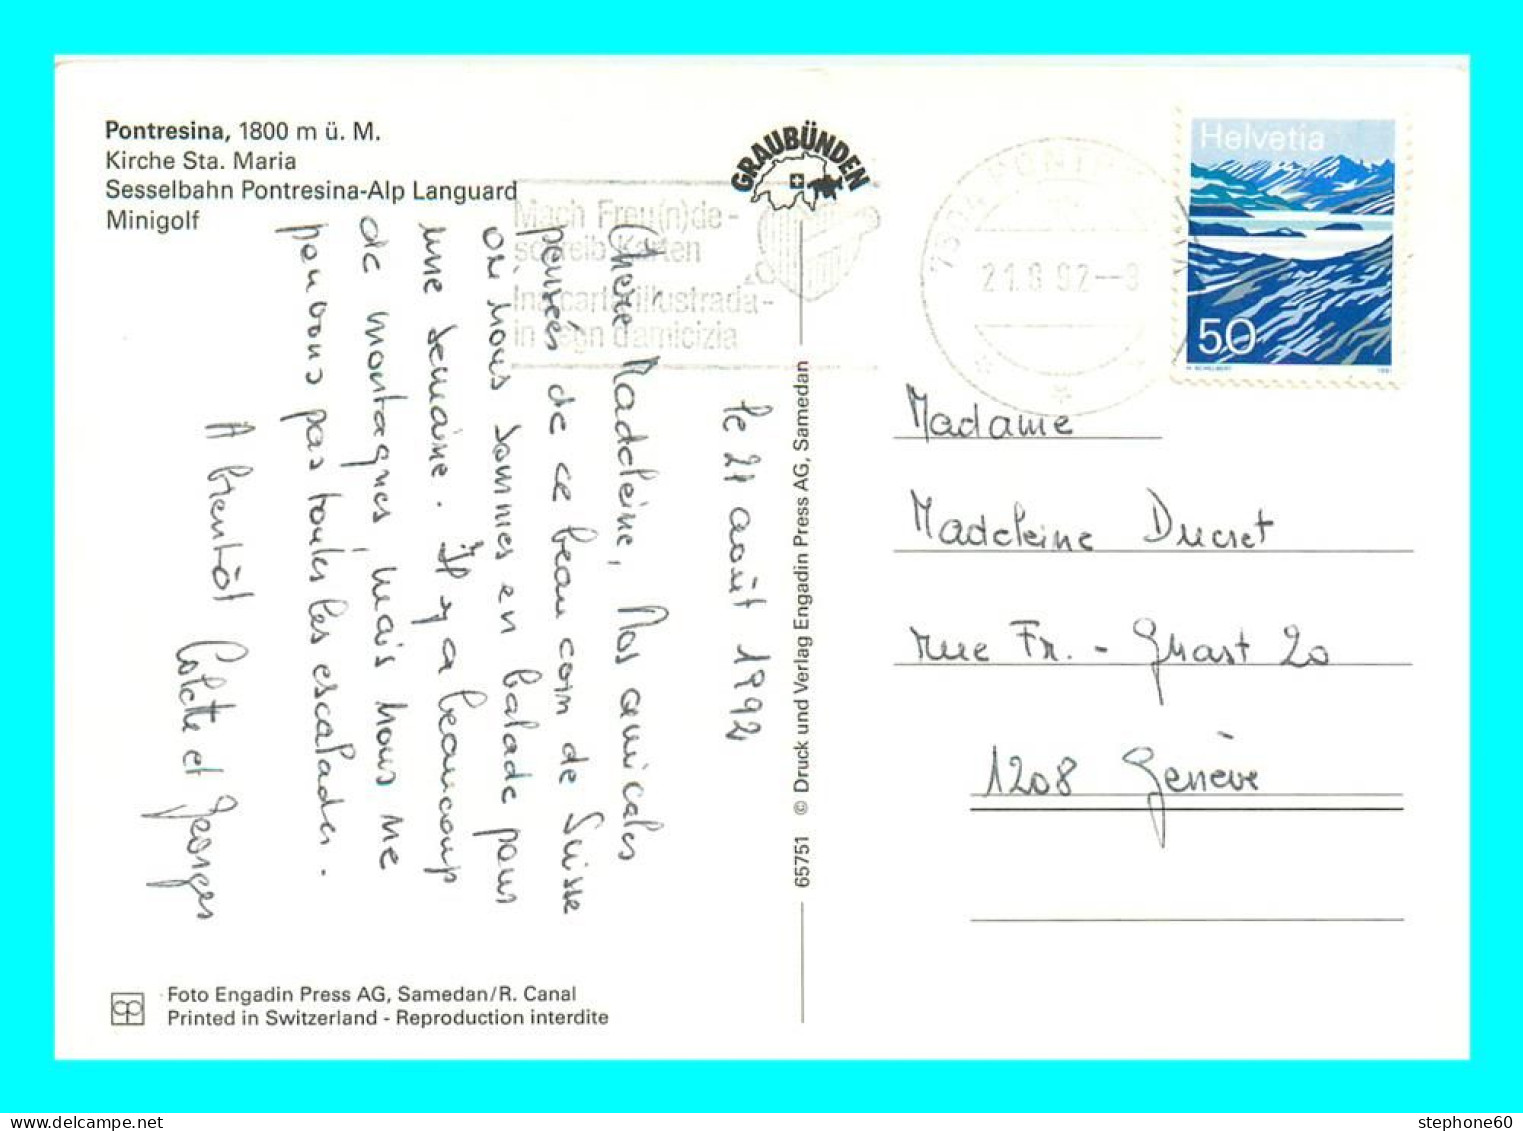 Pontresina, 1800 m ü. M.
Kirche Sta. Maria
Sesselbahn Pontresina-Alp Languard
Minigolf
GRAUBÜNDEN
Mach Freu(n)de-
schreib Karten
Ina carta illustrada-
in segn d'amicizia
21.8.92--8
Helvetia
50
H. SCHELBERT 1991
le 21 août 1992
Chère Madeleine, Nos amicales
pensées de ce beau coin de Suisse
où nous sommes en balade pour
une semaine. Il y a beaucoup
de montagnes mais nous ne
pouvons pas toutes les escalader.
A bientôt
Colette et Georges
65751 © Druck und Verlag Engadin Press AG, Samedan
Madame
Madeleine Ducret
rue Fr. - Grast 20
1208 Genève
Foto Engadin Press AG, Samedan/R. Canal
Printed in Switzerland - Reproduction interdite
stephone60